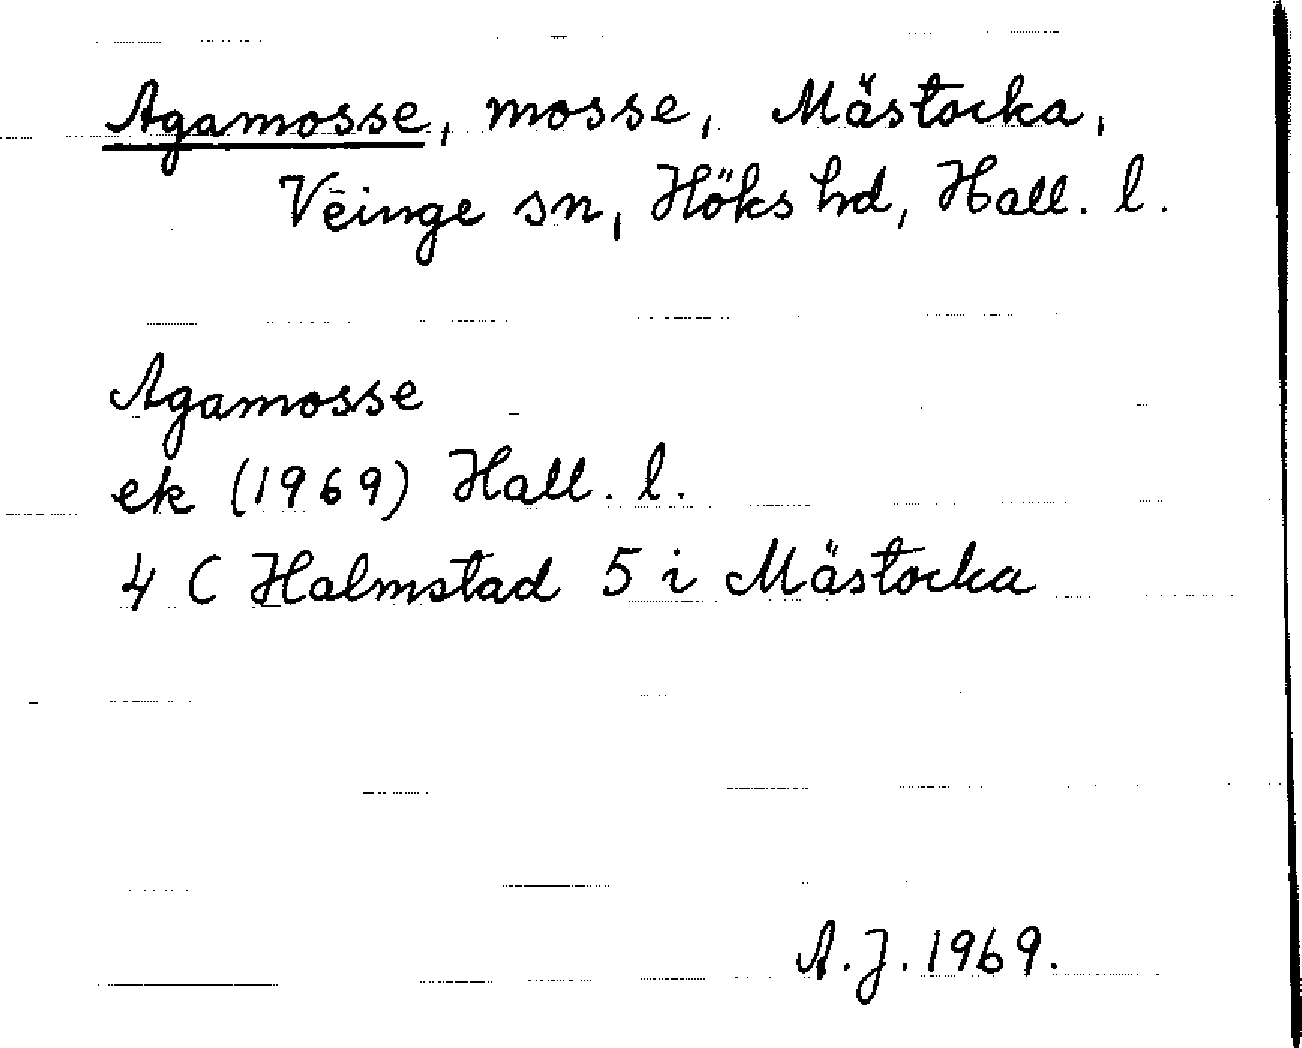 Agamosse, mosse, Mästocka,
Veinge sn, Höks hd, Hall. l.
Agamosse
ek (1969) Hall. l.
4 C Halmstad 5 i Mästocka
A.J. 1969.